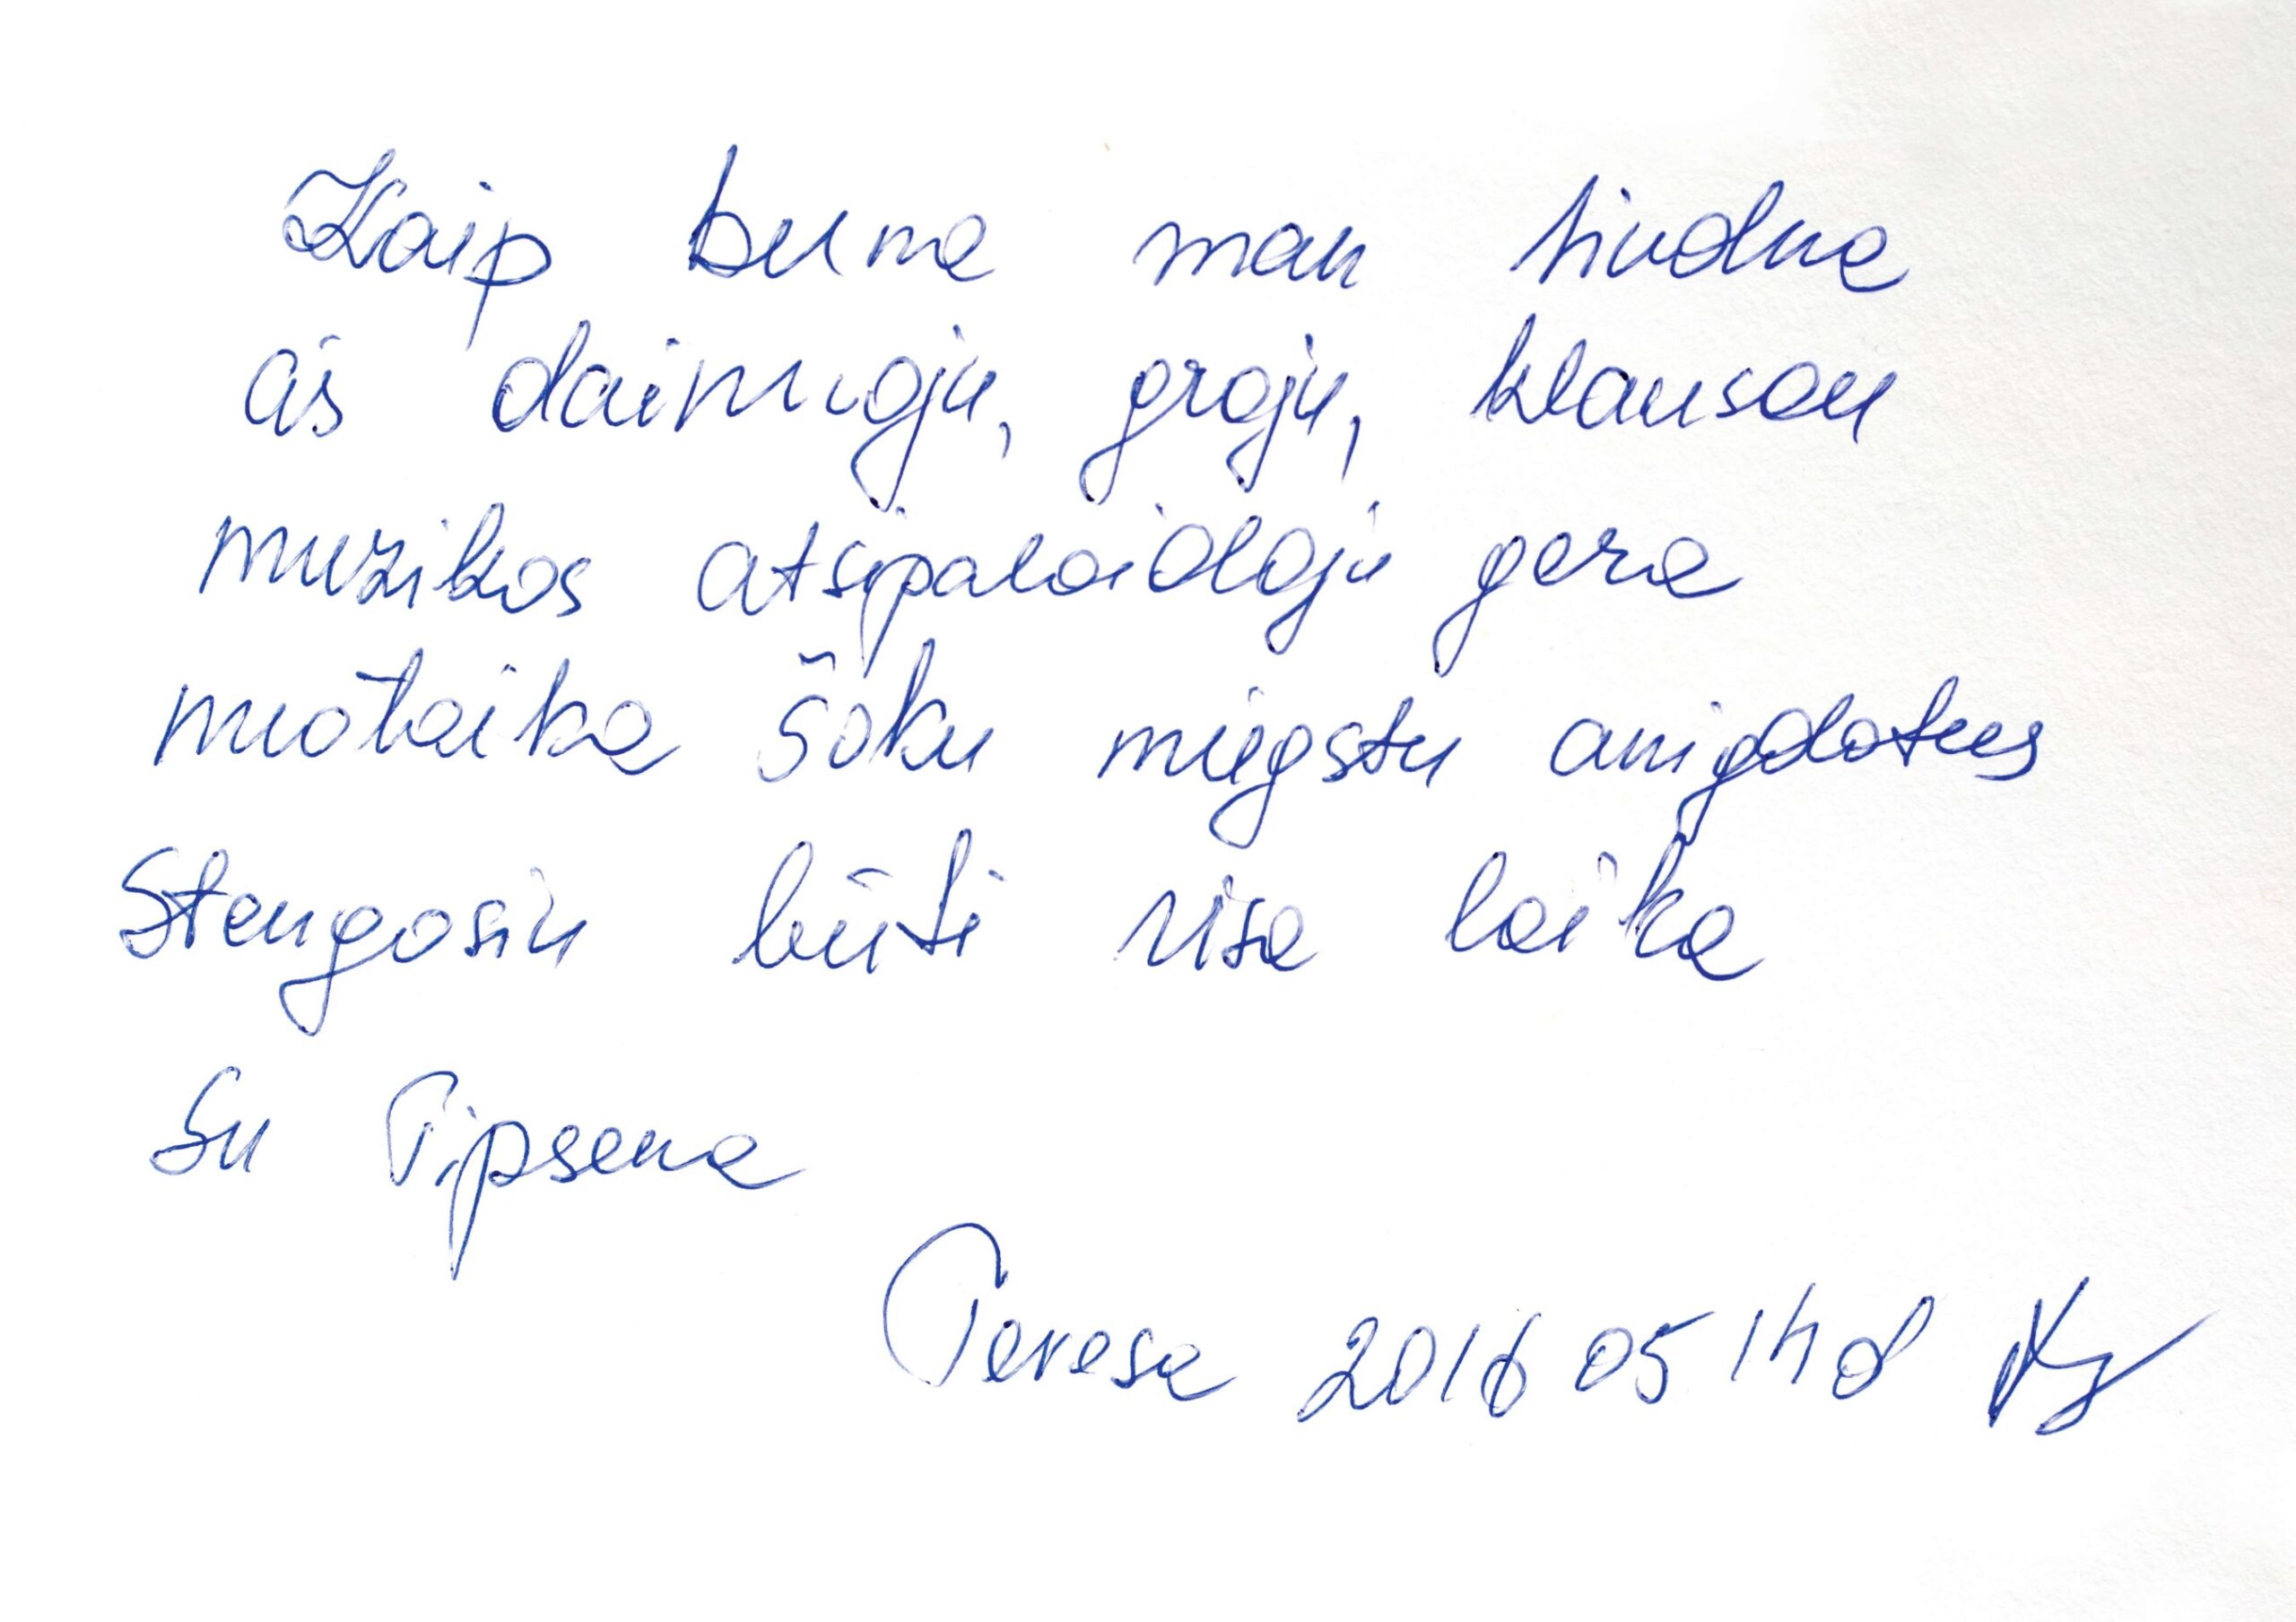 Kaip buna man liudna
aš dainuoju, groju, klausau
muzikos atsipalaidoju gera
nuotaika šoku miegstu anigdotus
Stengosiu būti visa laika
su Šipsena
Terese 2016 05 14 d